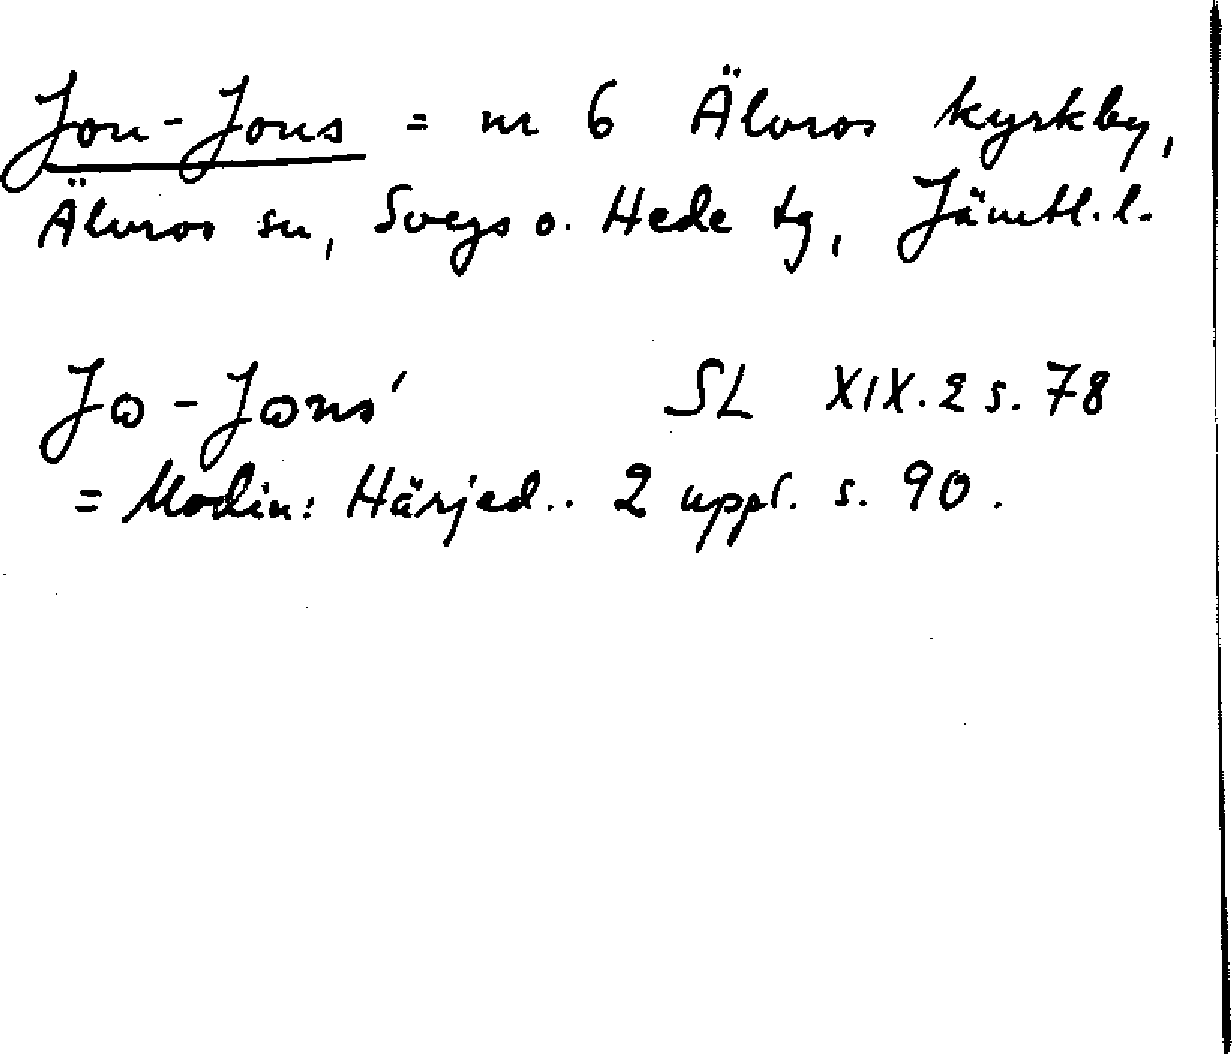 Jon-Jons = nr 6 Älvros kyrkby,
Älvros sn, Svegs o. Hede tg, Jämtl. l.
Jɷ-Jɷns' SL XIX.2 s. 78
= Modin: Härjed.. 2 uppl. s. 90.